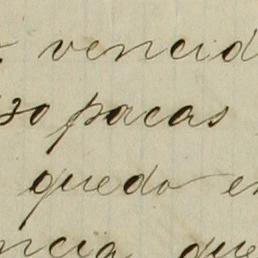 vencid
30 pacas
quedo en
ncia que